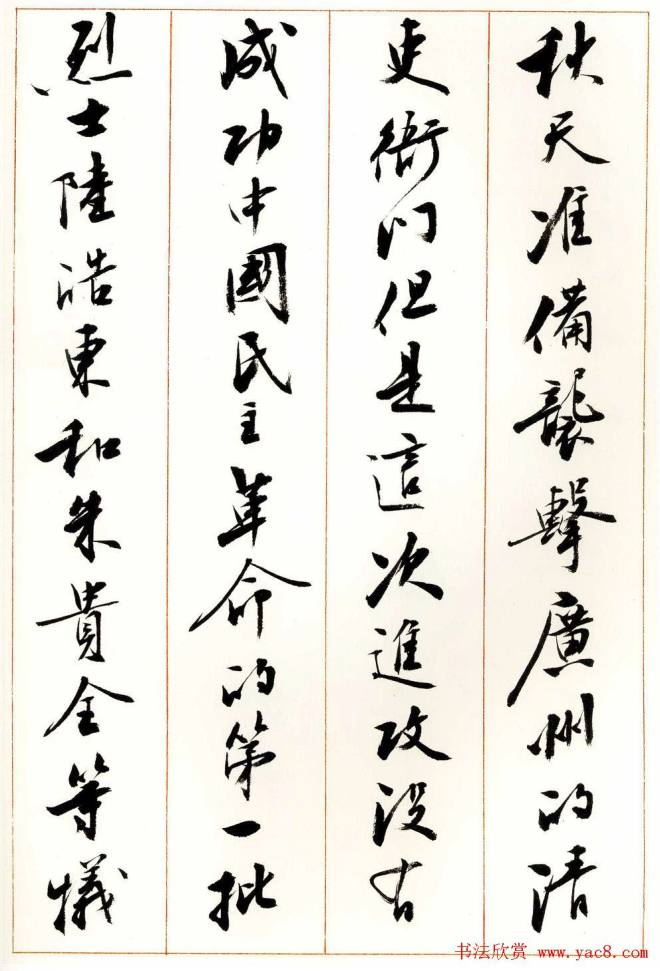 秋天准備襲擊廣州的清
吏衙门但是這次進攻没有
成功中國民主革命的第一批
烈士陸浩東和朱貴全等犧
书法欣赏 www.yac8.com